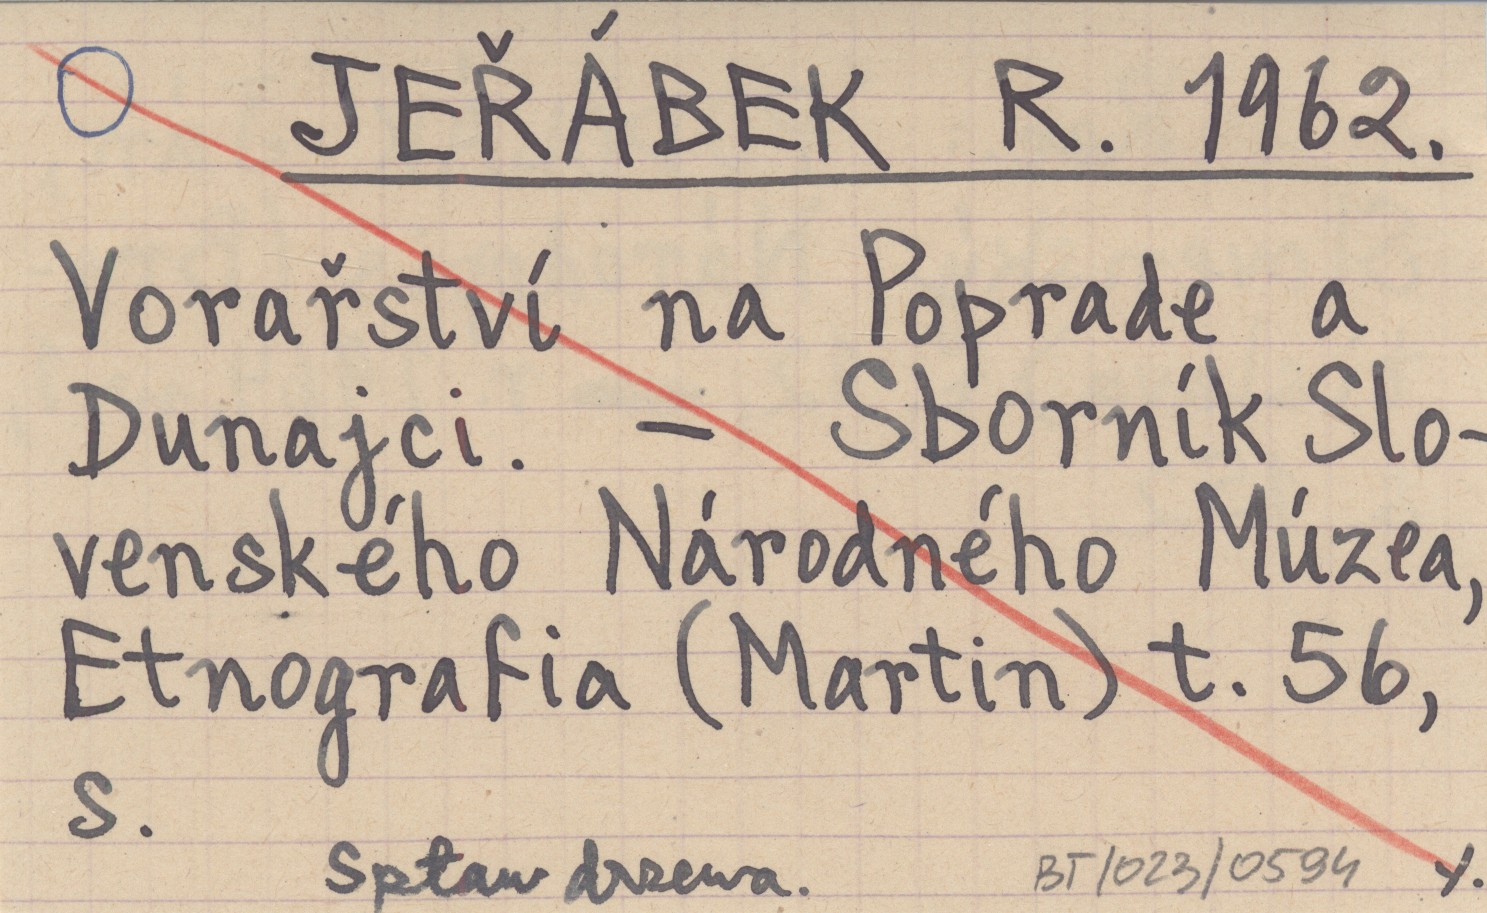 JEŘÁBEK R. 1962.
Vorařství na Poprade a
Dunajci. – Sborník Slo-
venského Národného Múzea,
Etnografia (Martin) t. 56,
s.
Spław drzewa.
BT/023/0594
Y.